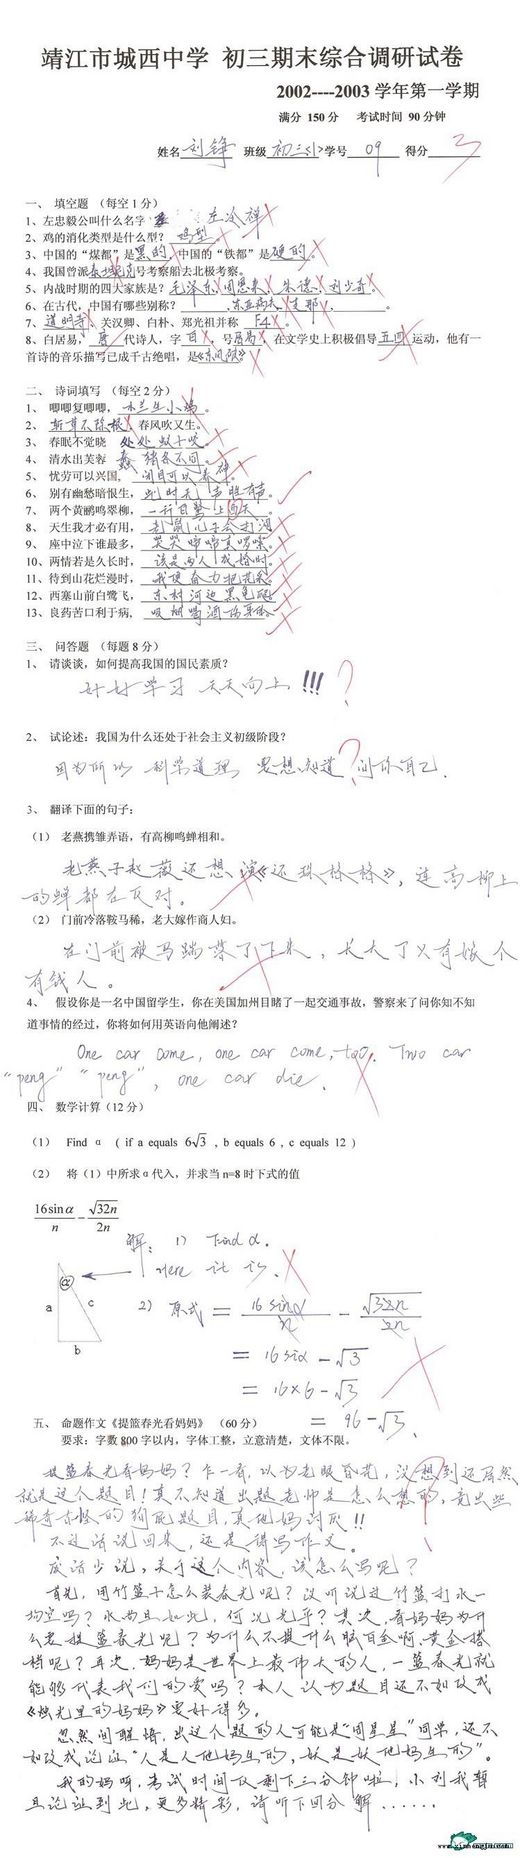 靖江市城西中学 初三期末综合调研试卷
2002----2003 学年第一学期
满分 150分 考试时间 90分钟
姓名 刘铮 班级 初三<1> 学号 09 得分 3
一、 填空题 (每空1分)
1、左忠毅公叫什么名字 左冷禅
2、鸡的消化类型是什么型? 鸡型。
3、中国的“煤都”是黑的,中国的“铁都”是硬的。
4、我国曾派泰坦尼克号考察船去北极考察。
5、内战时期的四大家族是? 毛泽东、周恩来、朱德、刘少奇。
6、在古代,中国有哪些别称? 、东亚病夫、支那、 。
7、道明寺、关汉卿、白朴、郑光祖并称 F4 。
8、白居易,唐代诗人,字白,号居易,在文学史上积极倡导五四运动,他有一
首诗的音乐描写已成千古绝唱,是《东风破》
二、 诗词填写 (每空2分)
1、 唧唧复唧唧,木兰生小鸡。
2、 斩草不除根,春风吹又生。
3、 春眠不觉晓 处处蚊子咬。
4、 清水出芙蓉
5、 忧劳可以兴国,闭目可以养神。
6、 别有幽愁暗恨生,此时无声胜有声。
7、 两个黄鹂鸣翠柳,一行白鹭上西天。
8、 天生我才必有用,老鼠儿子会打洞。
9、 座中泣下谁最多,
10、两情若是久长时,该是两人成婚时。
11、待到山花烂漫时,我便奋力把花采。
12、西塞山前白鹭飞,东村河边黑龟爬。
13、良药苦口利于病,吸烟喝酒伤身体。
三、 问答题 (每题8分)
1、 请谈谈,如何提高我国的国民素质?
好好学习 天天向上 !!! ?
2、 试论述:我国为什么还处于社会主义初级阶段?
因为所以 科学道理 要想知道 问你自己.
3、 翻译下面的句子:
(1) 老燕携雏弄语,有高柳鸣蝉相和。
老燕子赵薇还想演《还珠格格》,连高柳上
的蝉都在反对。
(2) 门前冷落鞍马稀,老大嫁作商人妇。
在门前被马踹落了下来,长大了又有嫁个
有钱人。
4、 假设你是一名中国留学生,你在美国加州目睹了一起交通事故,警察来了问你知不知
道事情的经过,你将如何用英语向他阐述?
One car come, one car come, too. Two car
“peng” “peng”, one car die.
四、 数学计算(12分)
(1) Find α ( if a equals 6√3 , b equals 6 , c equals 12 )
(2) 将(1)中所求α代入,并求当n=8时下式的值
16sinα/n - √32n/2n
解: 1) Find α.
Here it is.
2) 原式 = 16sinα/n - √32n/2n
= 16sinα - √3
= 16×6 - √3
= 96 - √3.
a α c
b
五、 命题作文《提篮春光看妈妈》 (60分)
要求:字数800字以内,字体工整,立意清楚,文体不限。
提篮春光看妈妈?乍一看,以为老眼昏花,没想到还居然
就是这个题目!真不知道出题老师是怎么想的,竟出些
稀奇古怪的狗屁题目,真他妈讨厌!!
不过话说回来,还是得写作文。
废话少说,关于这个内容,该怎么写呢?
首先,用竹篮子怎么装春光呢?没听说过竹篮打水一
场空吗?水尚且如此,何况光乎?其次,看妈妈为什
么要提篮春光呢?为什么不提什么脑白金啊、黄金搭
档呢?再次,妈妈是世界上最伟大的人,一篮春光就
能够代表我们的爱吗?本人认为题目还不如改成
《烛光里的妈妈》要好得多。
忽然间联想,出这个题的人可能是“周星星”同学,还不
如改成论证“人是人他妈生的,妖是妖他妈生的”。
我的妈呀,考试时间仅剩下三分钟啦,小刘我暂
且论证到此,更多精彩,请听下回分解......